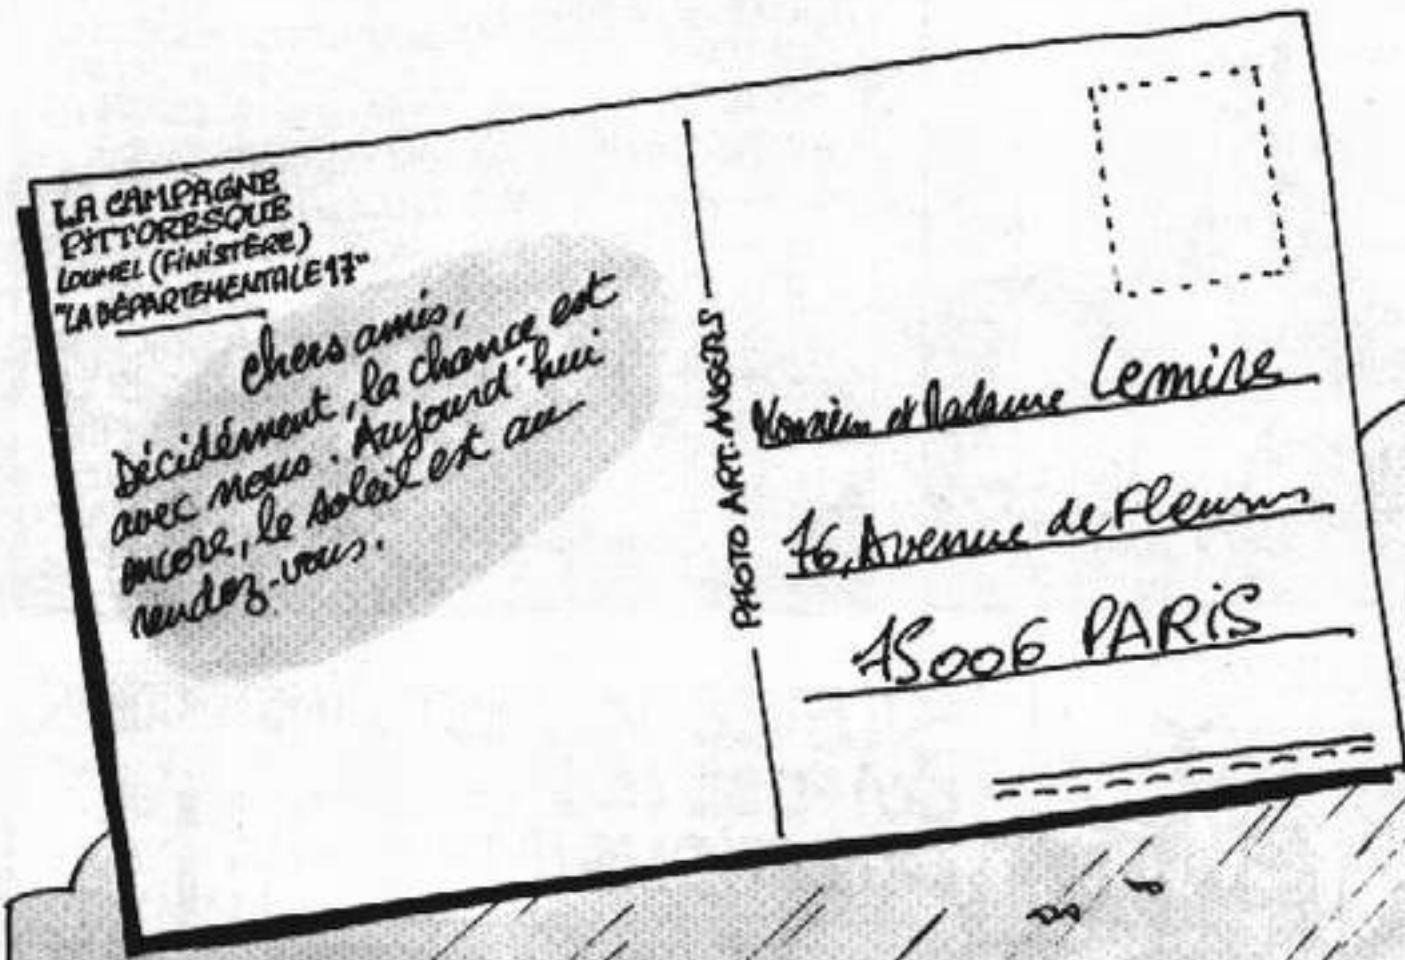 LA CAMPAGNE
PITTORESQUE
LOUMEL (FINISTÈRE)
"LA DÉPARTEMENTALE 17"
Chers amis,
Décidément, la chance est
avec nous. Aujourd'hui
encore, le soleil est au
rendez-vous.
PHOTO ART. MOGERS
Monsieur et Madame Lemire
76, Avenue de Fleurus
75006 PARIS